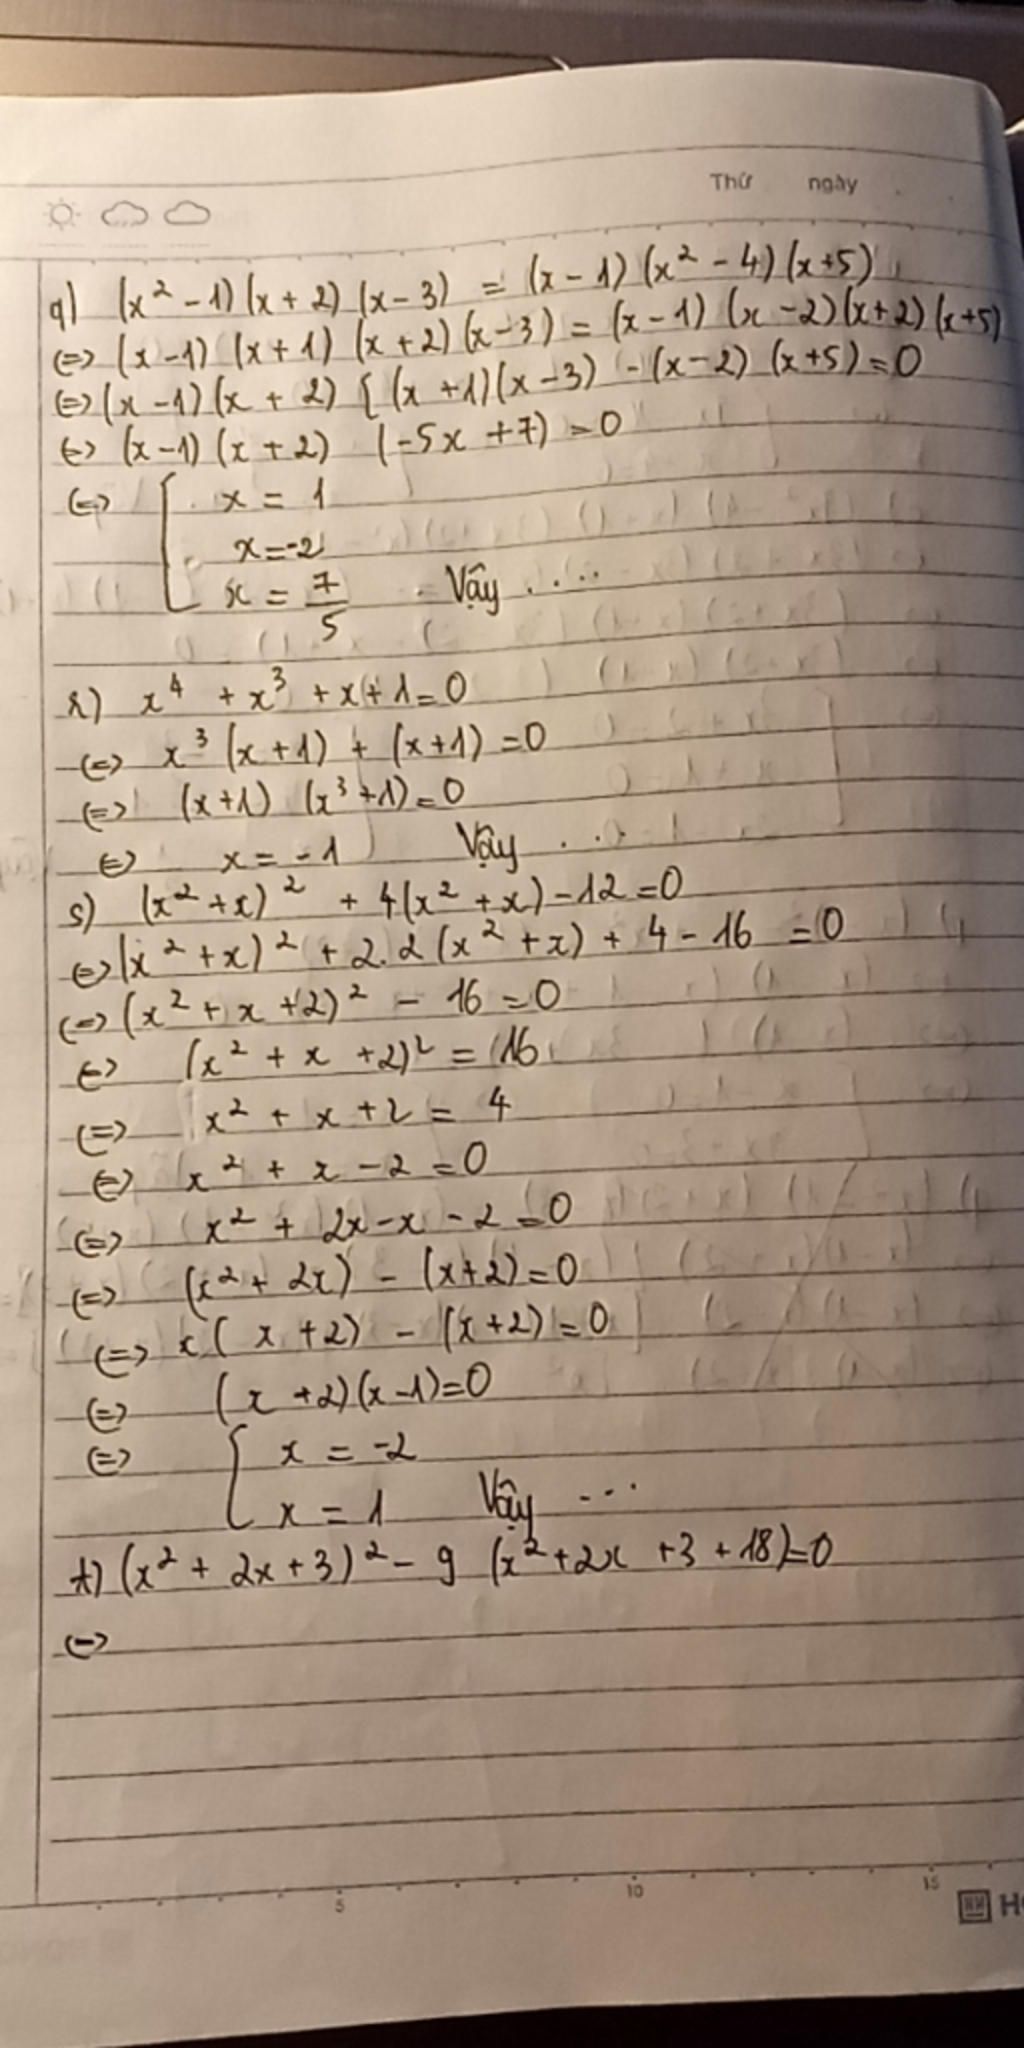 Thứ ngày
q) (x² - 1) (x + 2) (x - 3) = (x - 1) (x² - 4) (x+5)
(=> (x -1) (x + 1) (x + 2) (x - 3) = (x - 1) (x - 2) (x + 2) (x+5)
(=> (x -1) (x + 2) [ (x + 1) (x - 3) - (x - 2) (x +5) = 0
(=> (x -1) (x + 2) (-5x + 7) = 0
(=> x = 1
x = -2
x = 7/5 Vậy ....
r) x⁴ + x³ + x + 1 = 0
(=> x³ (x +1) + (x+1) = 0
(=> (x +1) (x³ +1) = 0
(=> x = -1 Vậy ...
s) (x² + x)² + 4(x² + x) - 12 = 0
(=> (x² + x)² + 2.2 (x² + x) + 4 - 16 = 0
(=> (x² + x + 2)² - 16 = 0
(=> (x² + x + 2)² = 16
(=> x² + x + 2 = 4
(=> x² + x - 2 = 0
(=> x² + 2x - x - 2 = 0
(=> (x² + 2x) - (x+2) = 0
(=> x ( x + 2) - (x + 2) = 0
(=> (x + 2) (x -1) = 0
(=> x = -2
x = 1 Vậy ...
t) (x² + 2x + 3)² - 9 (x² + 2x + 3 + 18) = 0
(=>
5 10 15